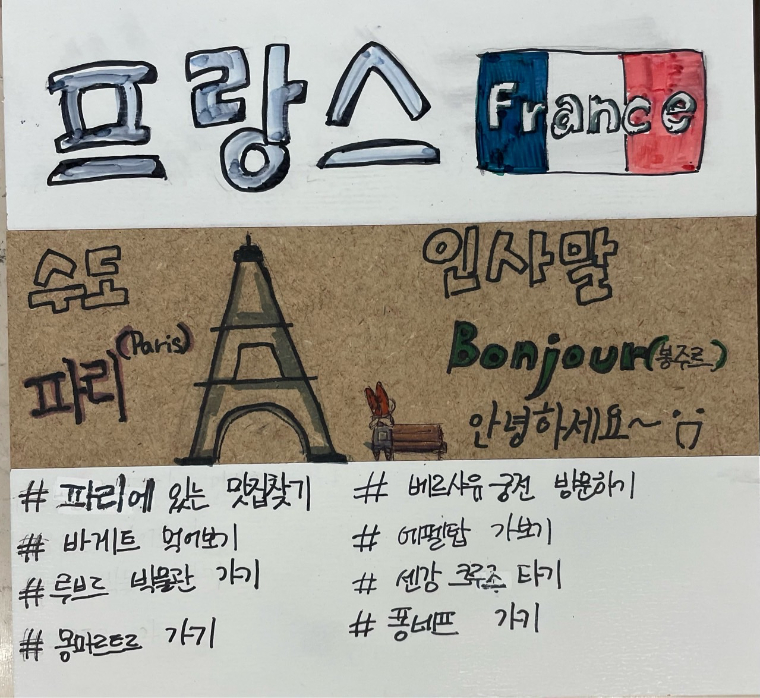 프랑스 France
수도
파리 (Paris)
인사말
Bonjour(봉주르)
안녕하세요~
# 파리에 있는 맛집찾기
# 바게트 먹어보기
# 루브르 박물관 가기
# 몽마르트르 가기
# 베르사유 궁전 방문하기
# 에펠탑 가보기
# 센강 크루즈 타기
# 퐁네프 가기